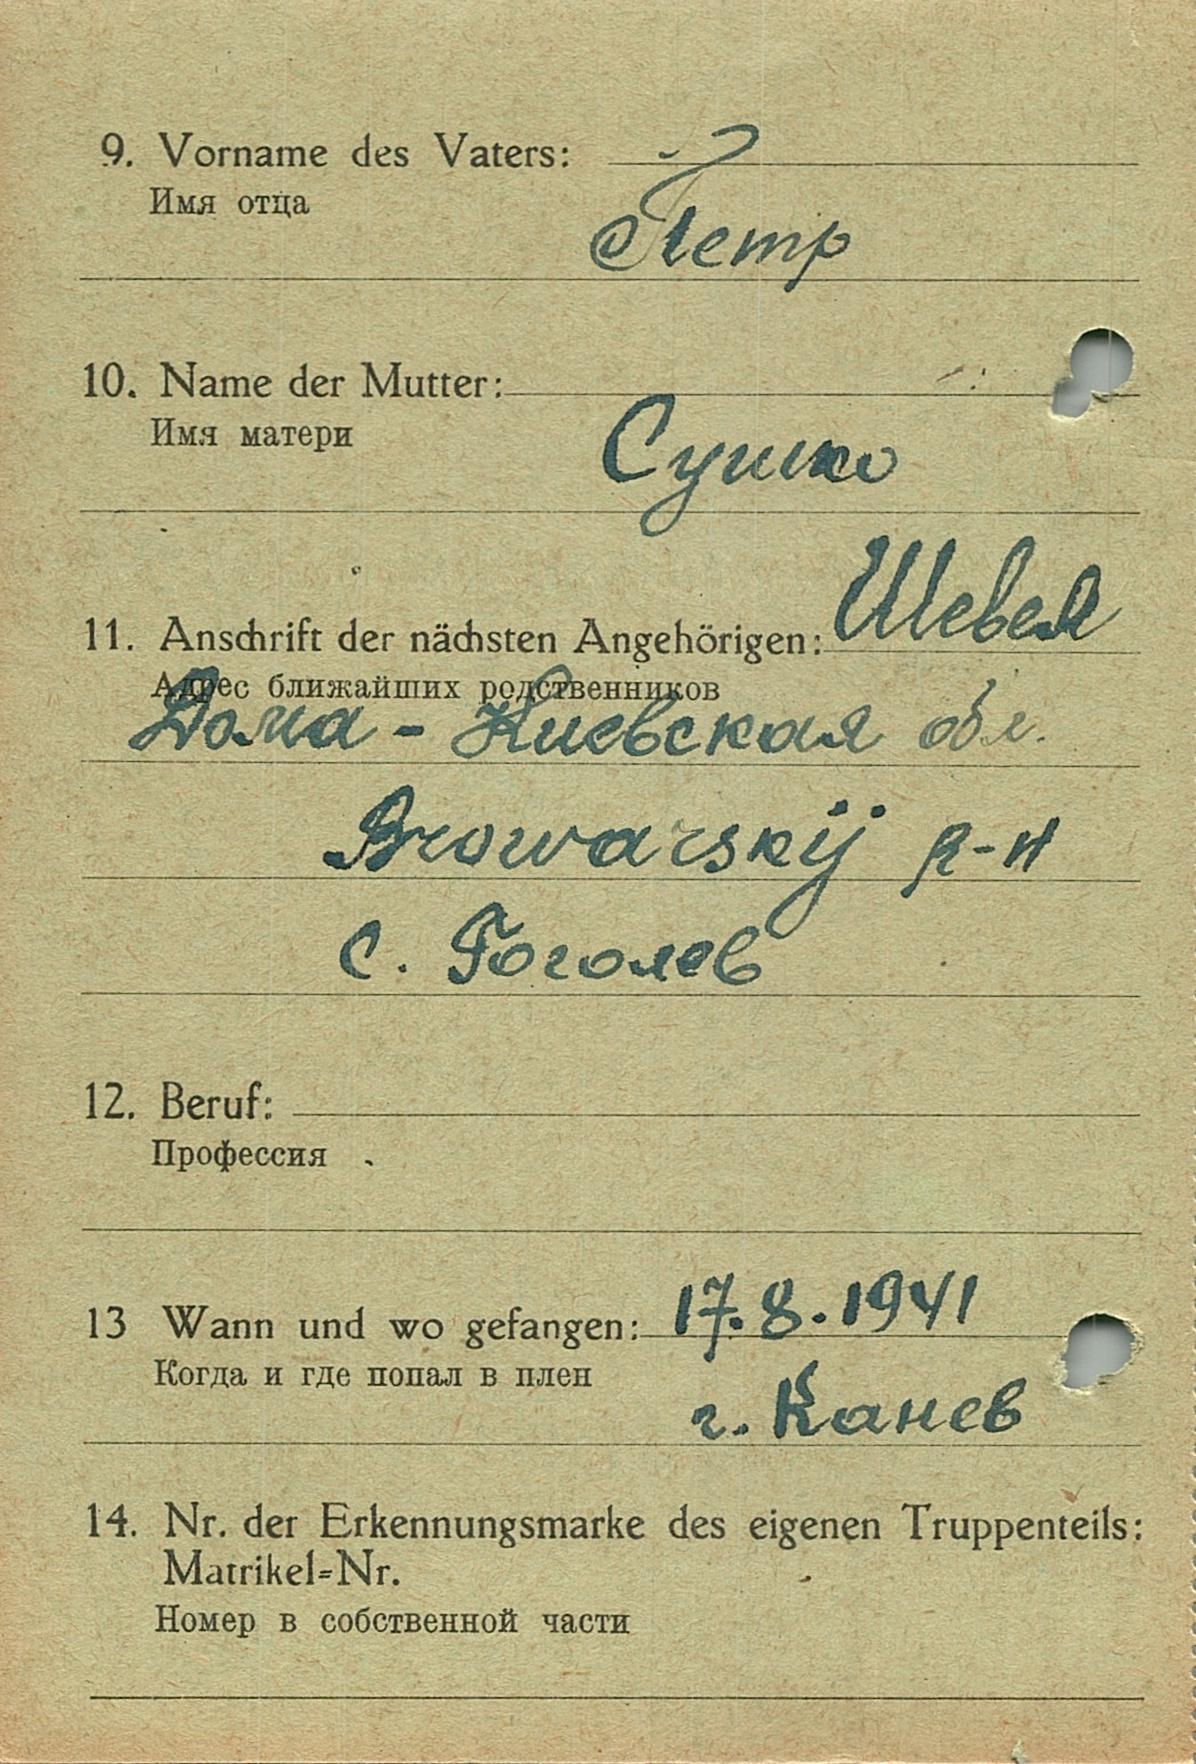 9. Vorname des Vaters:
Имя отца
Петр
10. Name der Mutter:
Имя матери
Сушко
Шевел
11. Anschrift der nächsten Angehörigen:
Адрес ближайших родственников
Дома - Киевская обл.
Browarskij р-н
с. Гоголев
12. Beruf:
Профессия
13 Wann und wo gefangen: 17.8.1941
Когда и где попал в плен
г. Канев
14. Nr. der Erkennungsmarke des eigenen Truppenteils:
Matrikel=Nr.
Номер в собственной части